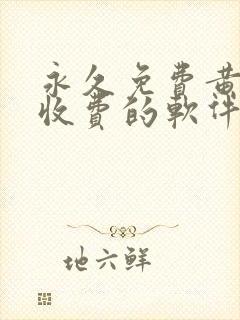 永久免费黄
收费的軟件
地六鲜